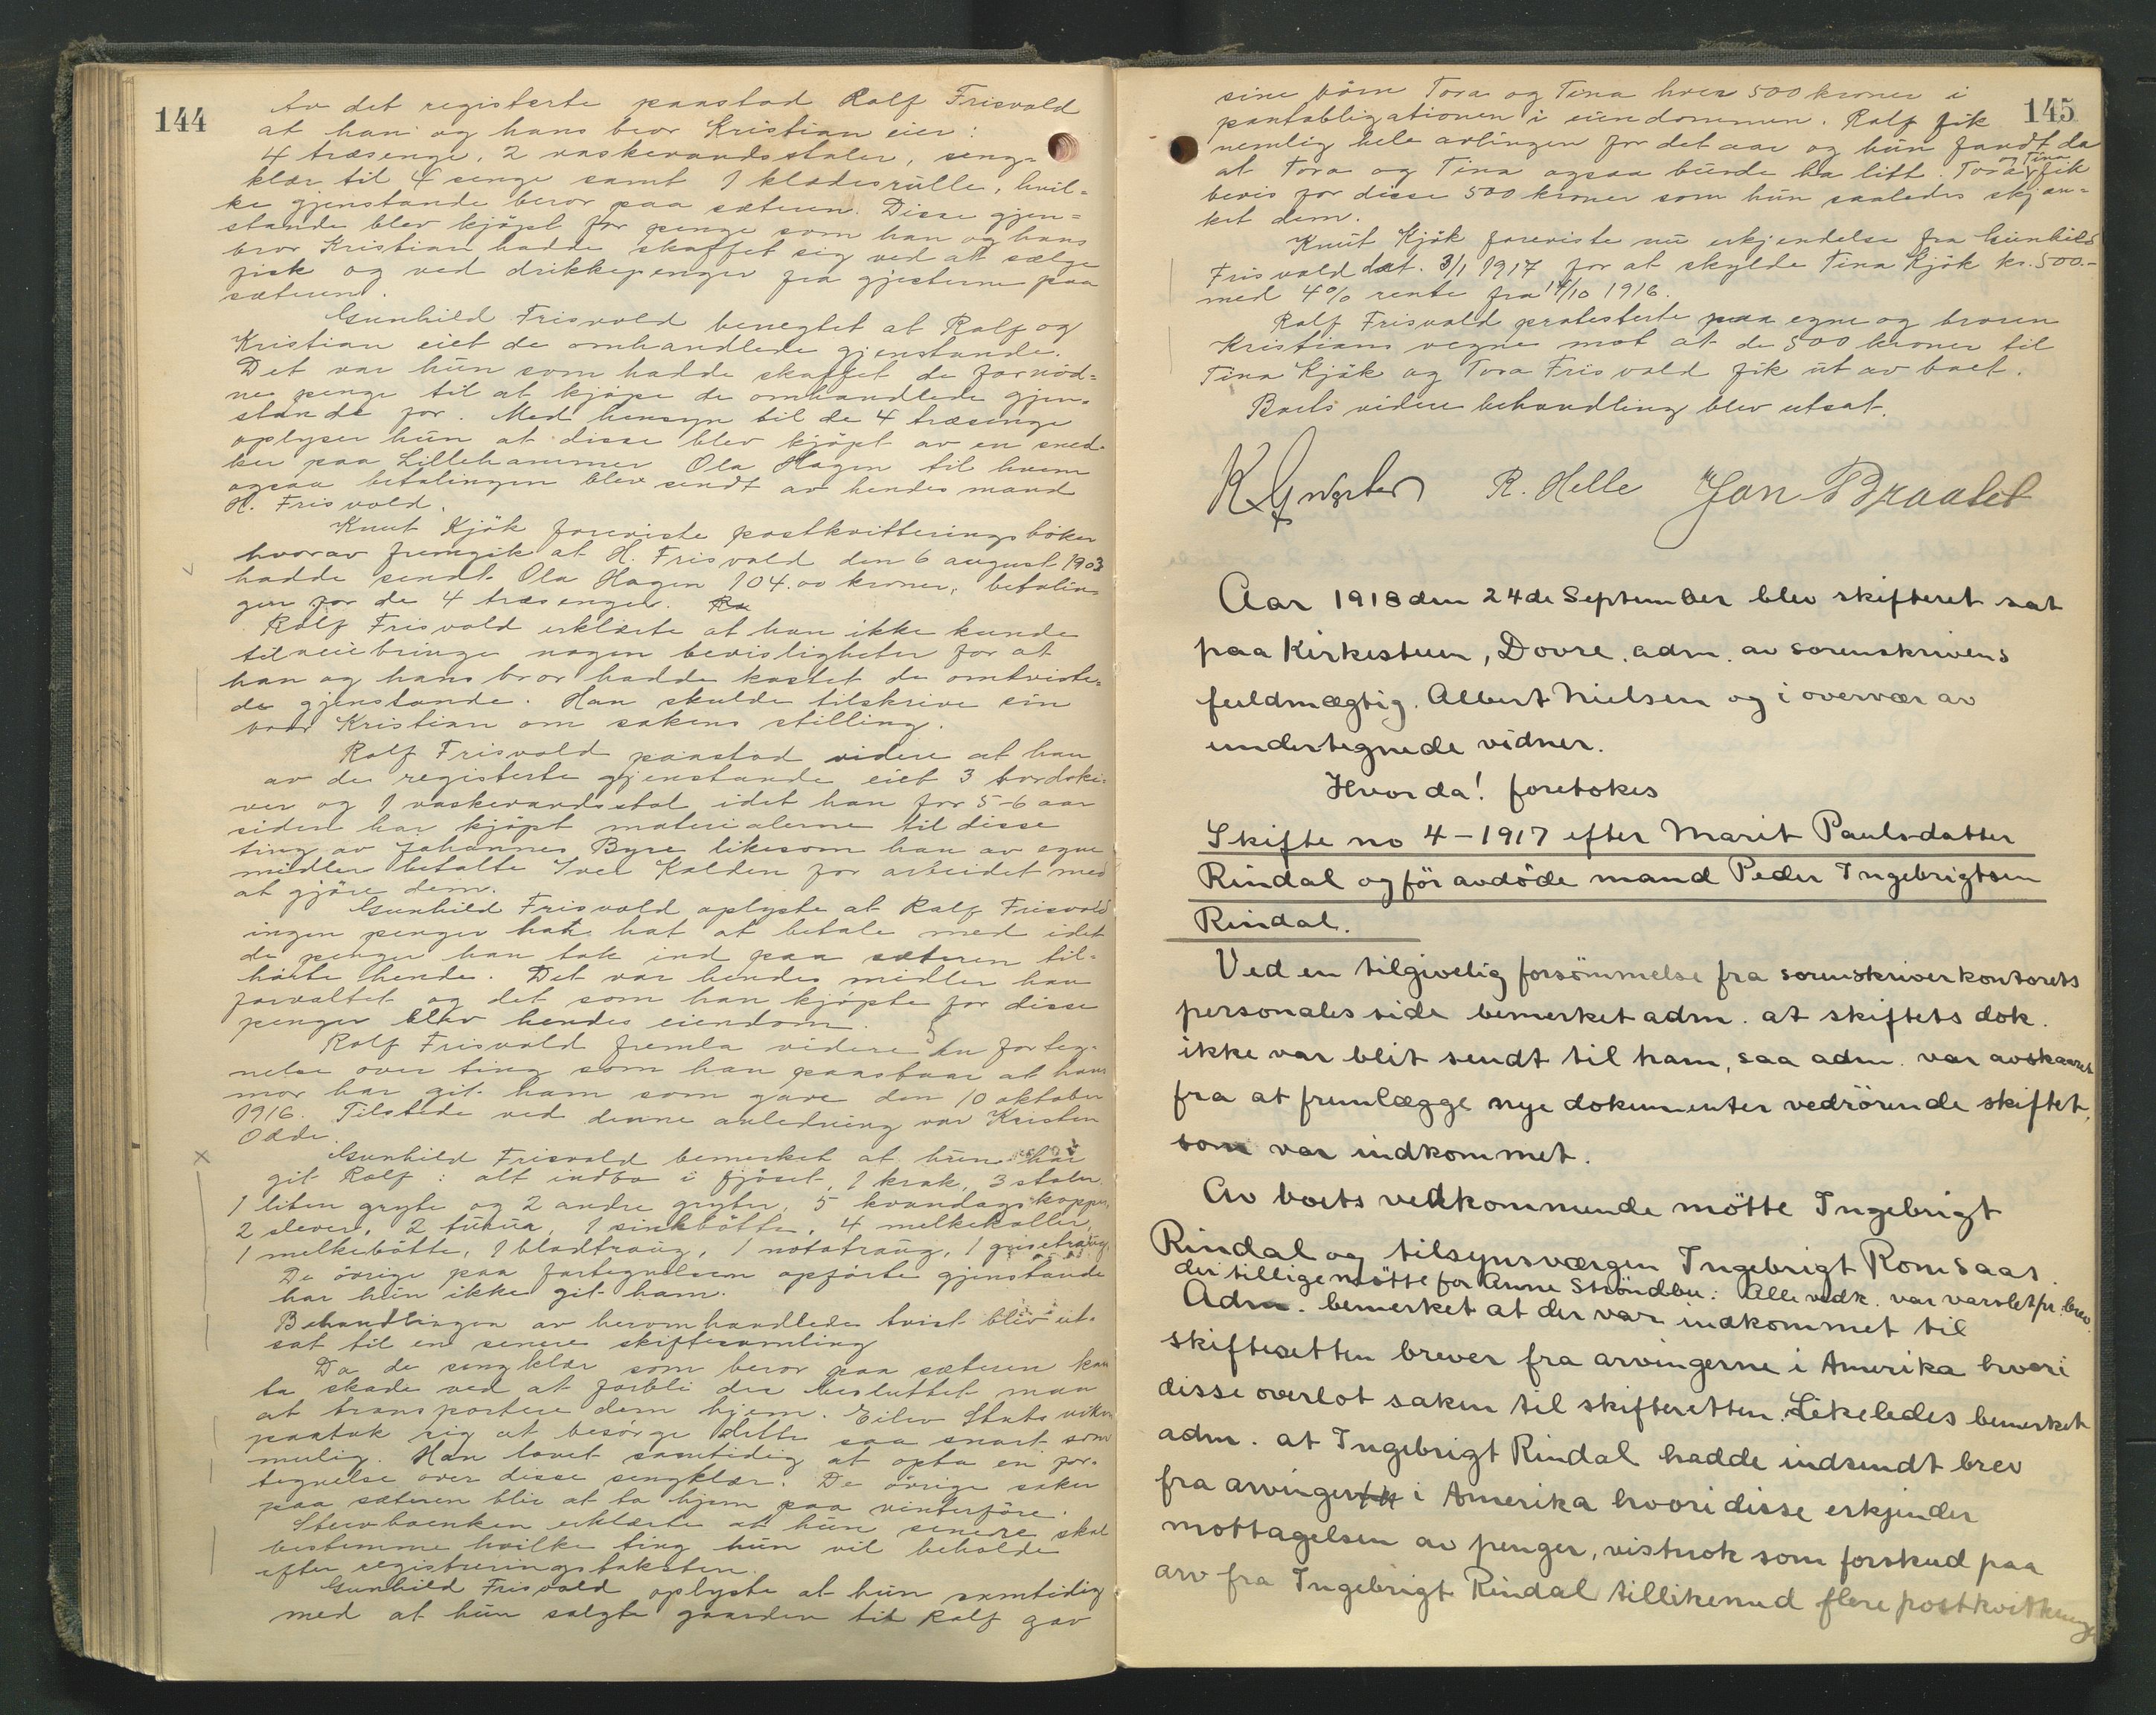 144
Av det registerte paastod Rolf Frisvold
at han og hans bror Kristian eier:
4 træsenge, 2 vaskevandsstoler, seng-
klær til 4 senge samt 1 klædesrulle, hvil-
ke gjenstande beror paa sæteren. Disse gjen-
stande blev kjöpt for penge som han og hans
bror Kristian hadde skaffet sig ved at sælge
fisk og ved drikkepenger fra gjesterne paa
sæteren.
Gunhild Frisvold benegtet at Rolf og
Kristian eiet de omhandlede gjenstande.
Det var hun som hadde skaffet de fornöd-
ne penge til at kjöpe de omhandlede gjen-
stande for. Med hensyn til de 4 træsenge
oplyser hun at disse blev kjöpt av en sned-
ker paa Lillehammer Ola Hagen til hvem
ogsaa betalingen blev sendt av hendes mand
H. Frisvold.
Knut Kjök foreviste postkvitteringsböker
hvorav fremgik at H. Frisvold den 6 august 1903
hadde sendt Ola Hagen 104.00 kroner, betalin-
gen for de 4 træsenger.
Rolf Frisvold erklærte at han ikke kunde
tilveiebringe nogen bevisligheter for at
han og hans bror hadde kostet de omtviste-
de gjenstande. Han skulde tilskrive sin
bror Kristian om sakens stilling.
Rolf Frisvold paastod videre at han
av de registerte gjenstande eiet 3 bordski-
ver og 1 vaskevandsstol idet han for 5-6 aar
siden har kjöpt materialerne til disse
ting av Johannes Byre likesom han av egne
midler betalte Iver Kolden for arbeidet med
at gjöre dem.
Gunhild Frisvold oplyste at Rolf Frisvold
ingen penger hat at betale med idet
de penger han tok ind paa sæteren til-
hörte hende. Det var hendes midler han
forvaltet og det som han kjöpte for disse
penger blev hendes eiendom.
Rolf Frisvold fremla videre en forteg-
nelse over ting som han paastaar at hans
mor har git ham som gave den 10 oktober
1916. Tilstede ved denne anledning var Kristen
Odde.
Gunhild Frisvold bemerket at hun har
git Rolf: alt indbo i fjöset, 1 krak, 3 stoler
1 liten gryte og 2 andre gryter, 5 kvardagskopper,
2 slever, 2 tuhua, 1 sinkbötte, 4 melkekoller,
1 melkebötte, 1 blodtraug, 1 notatraug, 1 grisetraug.
De övrige paa fortegnelsen opförte gjenstande
har hun ikke git ham.
Behandlingen av heromhandlede tvist blev ut-
sat til en senere skiftesamling
Da de sengklær som beror paa sæteren kan
ta skade ved at forbli der besluttet man
at transportere dem hjem. Eilev Stutsviken
paatok sig at besörge dette saa snart som
mulig. Han lovet samtidig at opta en for-
tegnelse over disse sengklær. De övrige saker
paa sæteren blir at ta hjem paa vinterföre.
Stervboenken erklærte at hun senere skal
bestemme hvilke ting hun vil beholde
efter registreringstaksten.
Gunhild Frisvold oplyste at hun samtidig
med at hun solgte gaarden til Rolf gav
145
sine börn Tora og Tina hver 500 kroner i
pantobligationen i eiendommen. Rolf fik
nemlig hele avlingen for det aar og hun fandt da
at Tora og Tina ogsaa burde ha litt. Tora og Tina fik
bevis for disse 500 kroner som hun saaledes skjæn-
ket dem.
Knut Kjök foreviste nu erkjendelse fra Gunhild
Frisvold dat. 3/1 1917 for at skylde Tina Kjök kr. 500.-
med 4% rente fra 14/10 1916.
Rolf Frisvold protesterte paa egne og broren
Kristians vegne mot at de 500 kroner til
Tina Kjök og Tora Frisvold fik ut av boet.
Boets videre behandling blev utsat.
R. Helle Jon Braatet
Aar 1918 den 24de September blev skifteret sat
paa Kirkestuen, Dovre. adm. av sorenskriverens
fuldmægtig. Albert Nielsen og i overvær av
undertegnede vidner.
Hvor da! foretokes
Skifte no 4-1917 efter Marit Paulsdatter
Rindal og för avdöde mand Peder Ingebrigtsen
Rindal.
Ved en tilgivelig forsömmelse fra sorenskriverkontorets
personales side bemerket adm. at skiftets dok.
ikke var blit sendt til ham, saa adm. var avskaaret
fra at fremlægge nye dokumenter vedrörende skiftet,
som var indkommet.
Av boets vedkommende mötte Ingebrigt
Rindal og tilsynsværgen Ingebrigt Romsaas.
der tillige mötte for Anne Ströndbu: Alle vedk. var varslet pr. brev.
Adm. bemerket at der var indkommet til
skifteretten brever fra arvingerne i Amerika hvori
disse overlot saken til skifteretten. Likeledes bemerket
adm. at Ingebrigt Rindal hadde indsendt brev
fra arvinger i Amerika hvori disse erkjender
mottagelsen av penger, vistnok som forskud paa
arv fra Ingebrigt Rindal tillikemed flere postkvittering